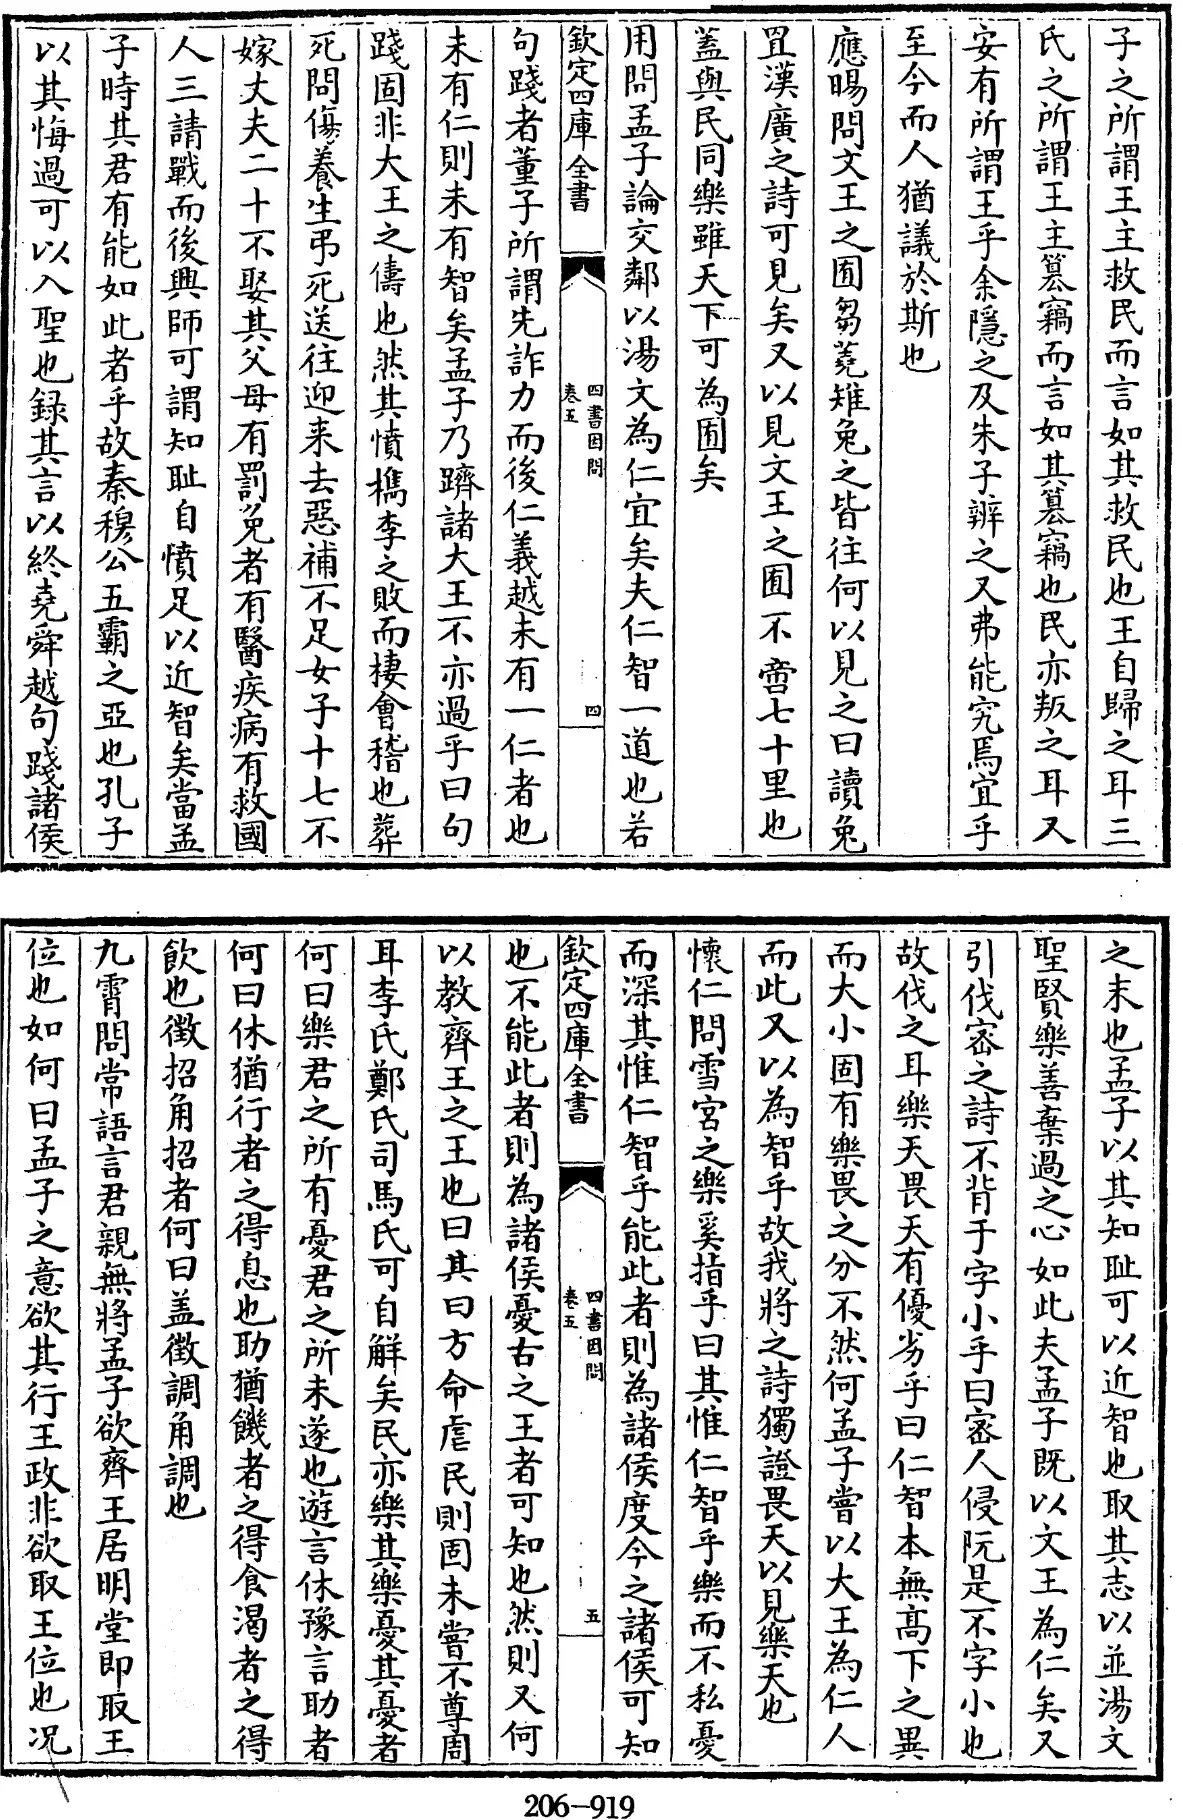 子之所謂王主救民而言如其救民也王自歸之耳三
氏之所謂王主簒竊而言如其簒竊也民亦叛之耳又
安有所謂王乎余隱之及朱子辨之又弗能究焉宜乎
至今而人猶議於斯也
應暘問文王之囿芻蕘雉兔之皆往何以見之曰讀兔
罝漢廣之詩可見矣又以見文王之囿不啻七十里也
蓋與民同樂雖天下可為囿矣
用問孟子論交鄰以湯文為仁宜矣夫仁智一道也若
欽定四庫全書
四書因問
卷五
四
句踐者董子所謂先詐力而後仁義越未有一仁者也
未有仁則未有智矣孟子乃躋諸大王不亦過乎曰句
踐固非大王之儔也然其憤檇李之敗而棲會稽也葬
死問傷養生弔死送往迎来去惡補不足女子十七不
嫁丈夫二十不娶其父母有罰免者有醫疾病有救國
人三請戰而後興師可謂知耻自憤足以近智矣當孟
子時其君有能如此者乎故秦穆公五霸之亞也孔子
以其悔過可以入聖也録其言以終堯舜越句踐諸侯
之末也孟子以其知耻可以近智也取其志以並湯文
聖賢樂善棄過之心如此夫孟子既以文王為仁矣又
引伐密之詩不背于字小乎曰密人侵阮是不字小也
故伐之耳樂天畏天有優劣乎曰仁智本無髙下之異
而大小固有樂畏之分不然何孟子嘗以大王為仁人
而此又以為智乎故我將之詩獨證畏天以見樂天也
懷仁問雪宮之樂奚指乎曰其惟仁智乎樂而不私憂
而深其惟仁智乎能此者則為諸侯度今之諸侯可知
欽定四庫全書
四書因問
卷五
五
也不能此者則為諸侯憂古之王者可知也然則又何
以教齊王之王也曰其曰方命虐民則固未嘗不尊周
耳李氏鄭氏司馬氏可自解矣民亦樂其樂憂其憂者
何曰樂君之所有憂君之所未遂也遊言休豫言助者
何曰休猶行者之得息也助猶饑者之得食渴者之得
飲也徵招角招者何曰盖徵調角調也
九霄問常語言君親無將孟子欲齊王居明堂即取王
位也如何曰孟子之意欲其行王政非欲取王位也况
206-919